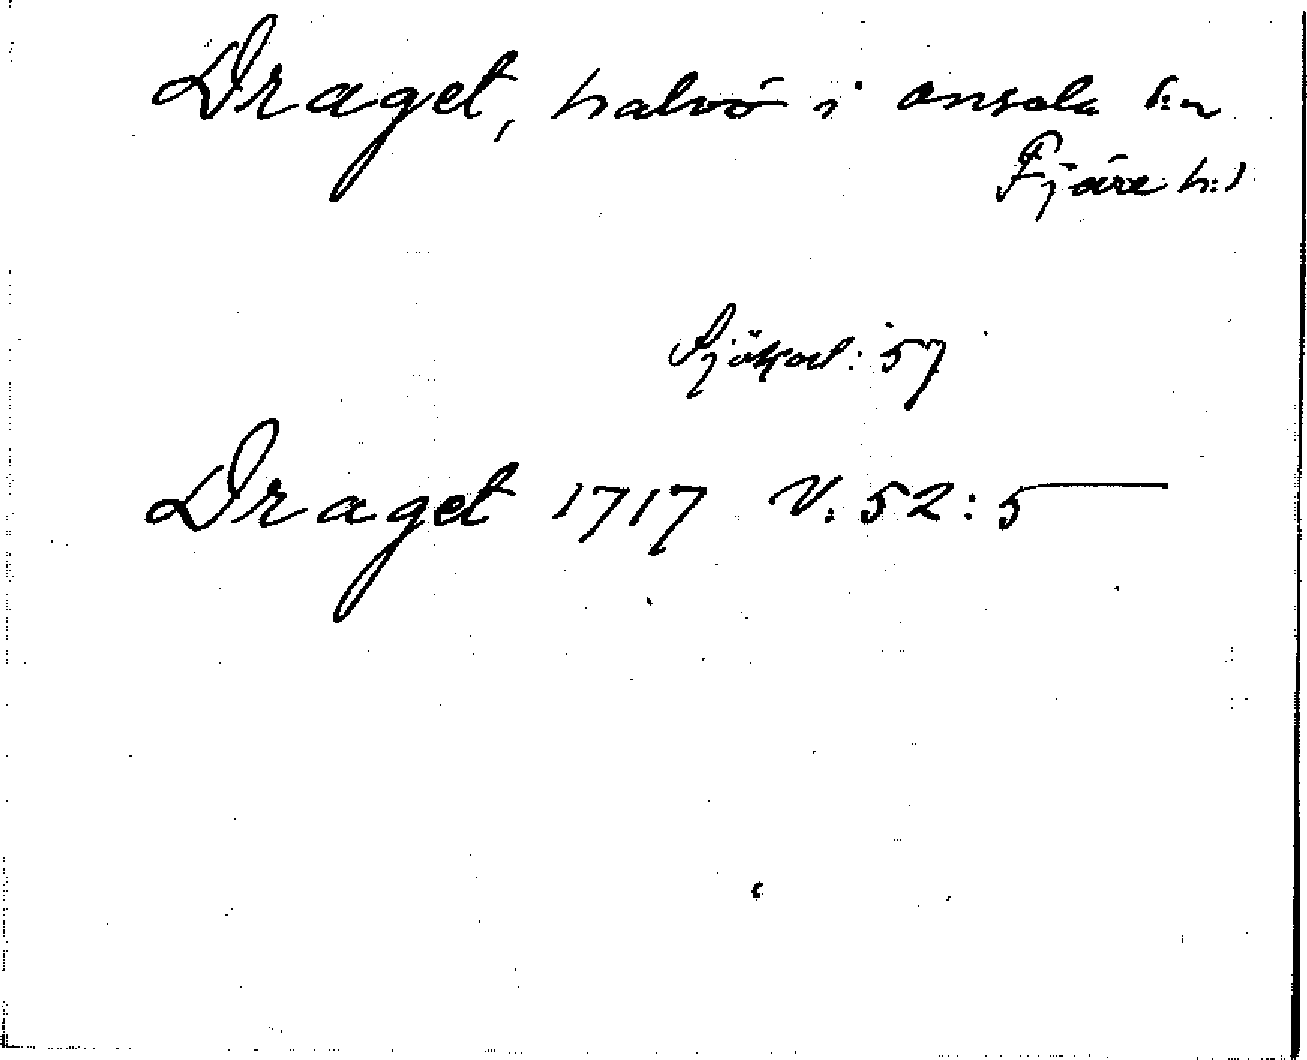 Draget, halvö i Onsala s:n
Fjäre h:d
Sjökort: 57
Draget 1717 V: 52: 5